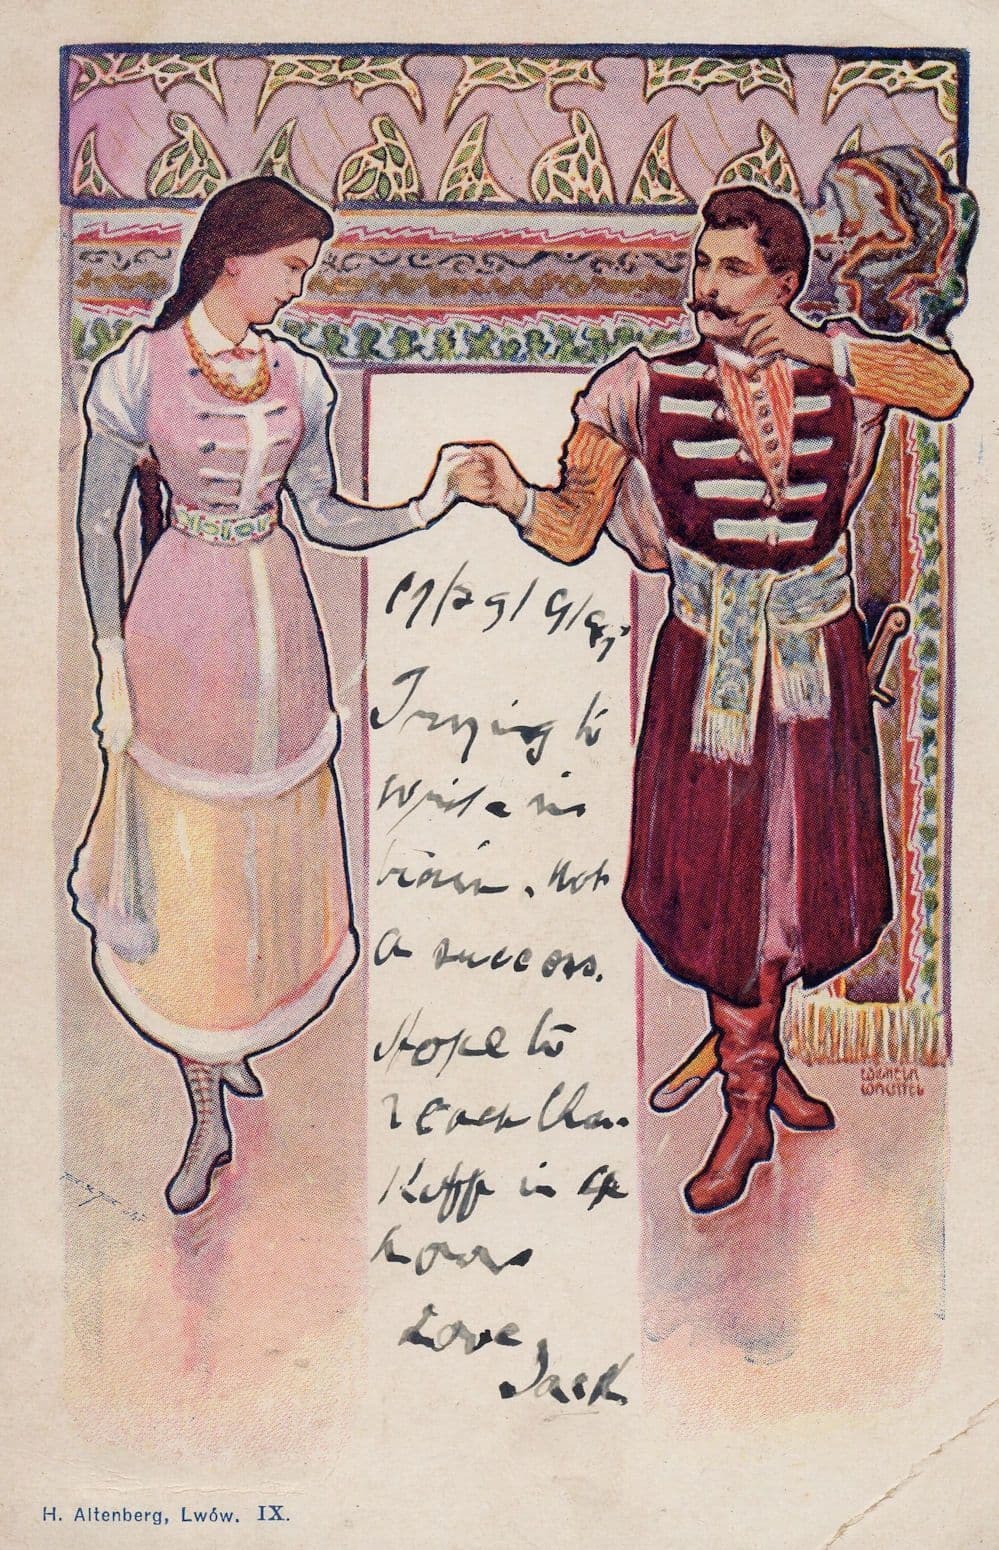 Trying to
write in
train. Not
a success.
Hope to
reach Char-
Koff in 4
hours
Love,
Jack
WILHELM
WACHTEL
H. Altenberg, Lwów. IX.